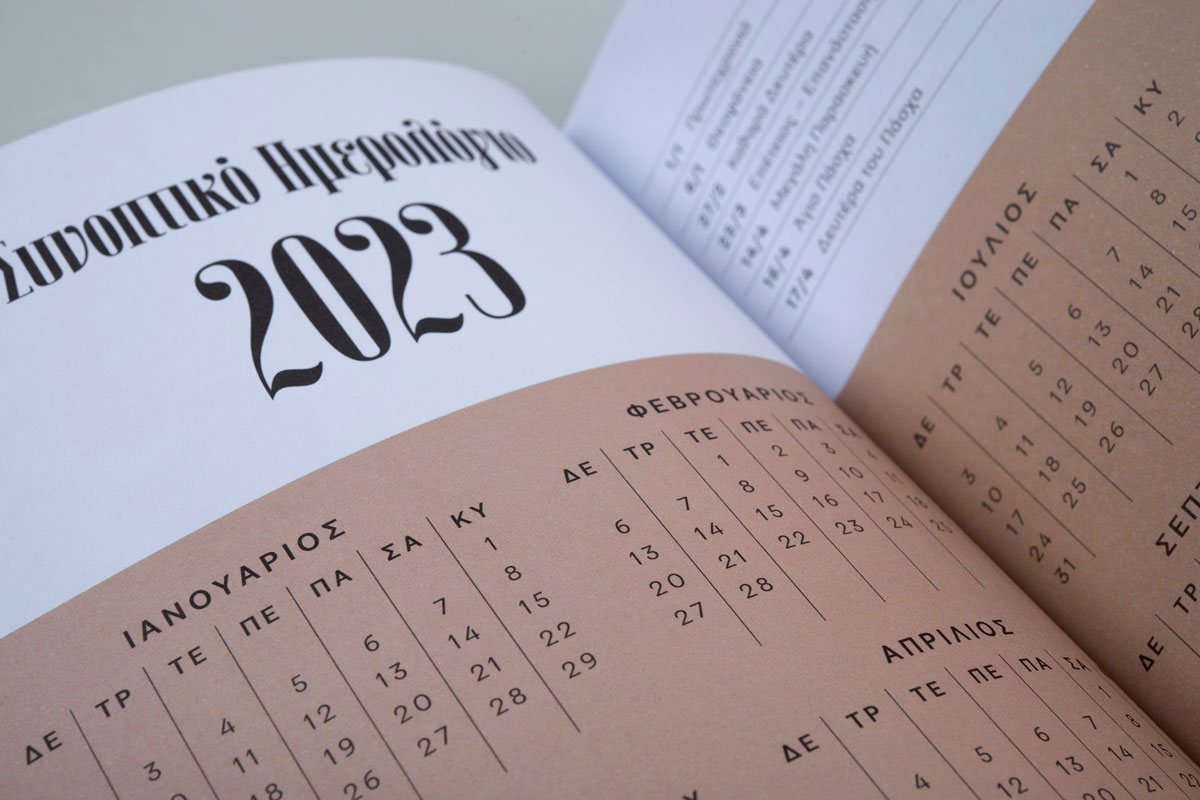 Συνοπτικό Ημερολόγιο
2023
ΙΑΝΟΥΑΡΙΟΣ
ΔΕ ΤΡ ΤΕ ΠΕ ΠΑ ΣΑ ΚΥ
1
3 4 5 6 7 8
11 12 13 14 15
18 19 20 21 22
26 27 28 29
ΦΕΒΡΟΥΑΡΙΟΣ
ΔΕ ΤΡ ΤΕ ΠΕ ΠΑ ΣΑ
1 2 3 4
6 7 8 9 10 11
13 14 15 16 17 18
20 21 22 23 24 25
27 28
ΑΠΡΙΛΙΟΣ
ΔΕ ΤΡ ΤΕ ΠΕ ΠΑ ΣΑ
1
4 5 6 7 8
12 13 14 15
20 21 22
1/1 Πρωτοχρονιά
6/1 Θεοφάνεια
27/2 Καθαρά Δευτέρα
25/3 Ευαγγελισμός – Επανάσταση
14/4 Μεγάλη Παρασκευή
16/4 Άγιο Πάσχα
17/4 Δευτέρα του Πάσχα
ΙΟΥΛΙΟΣ
ΔΕ ΤΡ ΤΕ ΠΕ ΠΑ ΣΑ ΚΥ
1 2
3 4 5 6 7 8
10 11 12 13 14 15
17 18 19 20 21
24 25 26 27 28
31
ΣΕΠΤ
ΔΕ ΤΡ